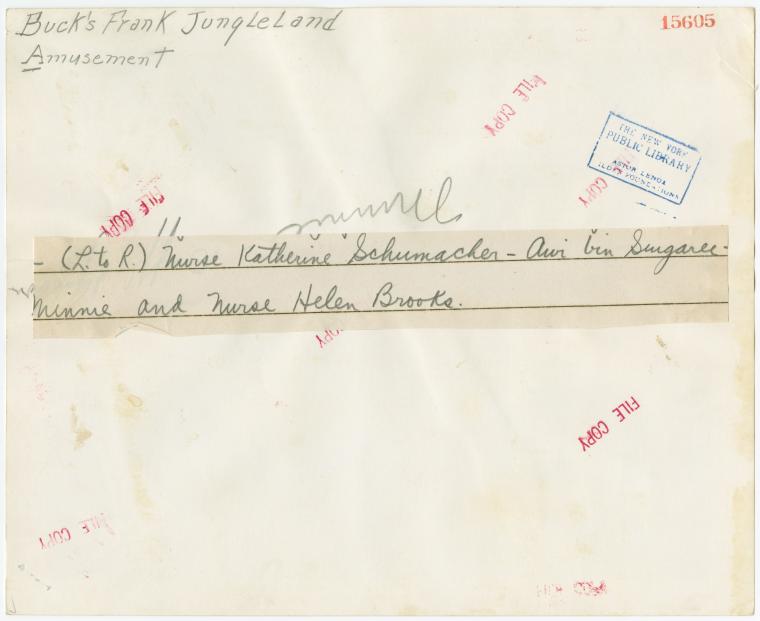 Buck's Frank Jungleland
Amusement
15605
FILE COPY
THE NEW YORK
PUBLIC LIBRARY
ASTOR LENOX
TILDEN FOUNDATIONS
COPY
FILE COPY
- (L. to R.) Nurse Katherine Schumacher - Awi bin Singaree -
Minnie and Nurse Helen Brooks.
COPY
FILE COPY
FILE COPY